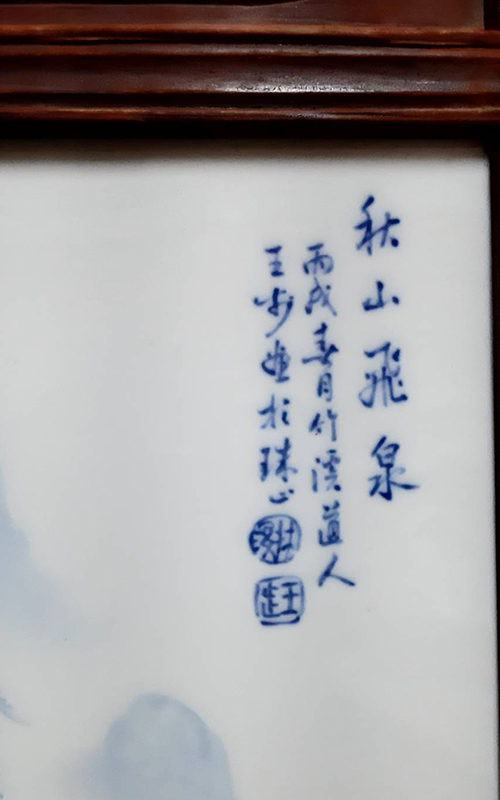 秋山飛泉
丙戌春月竹溪道人
王步畫於珠山
王步